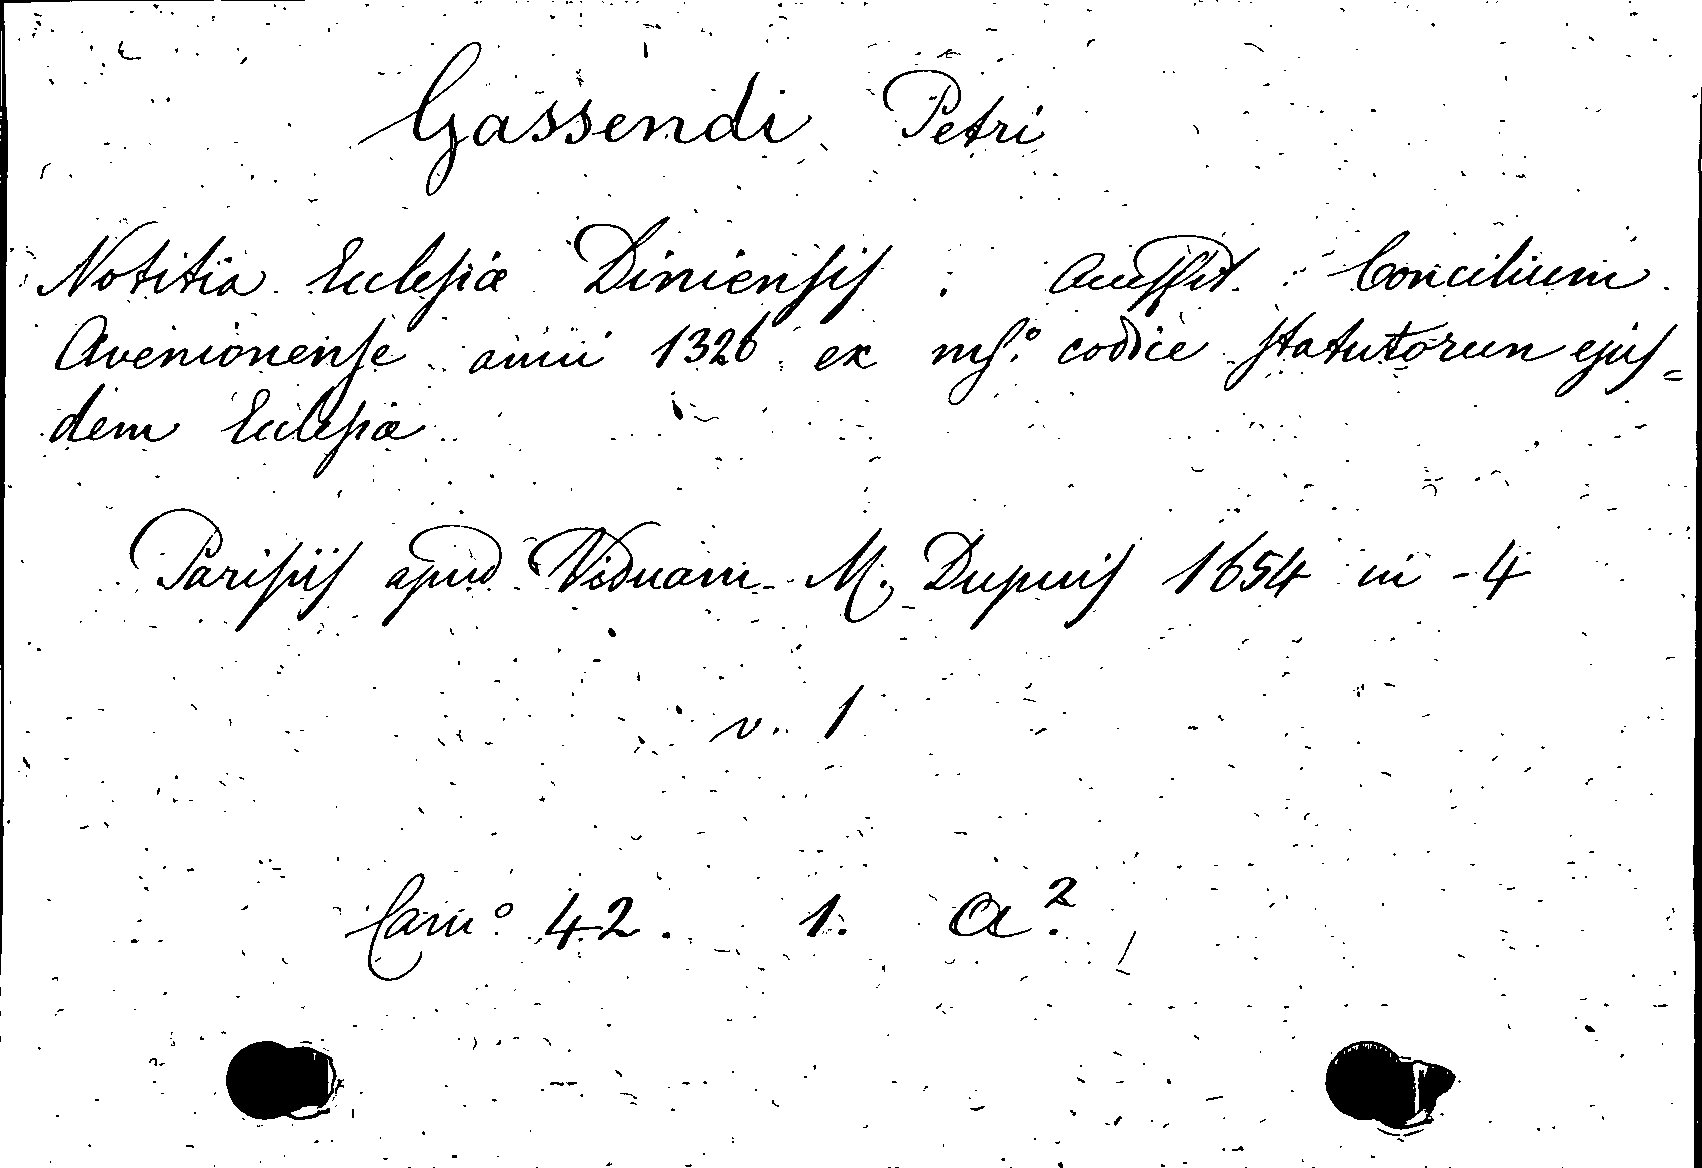 Gassendi Petri
Notitia Ecclesiæ Diniensis : Accessit. Concilium
Avenionense anni 1326 ex ms.º codice statutorum ejus=
dem Ecclesiæ
Parisiis apud Viduam M. Dupuis 1654 in -4
v. 1
Cam.º 42. 1. a.²